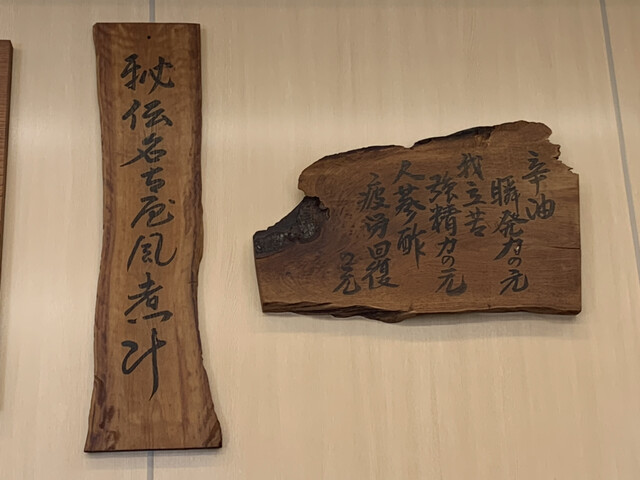 秘伝名古屋風煮汁
辛油
瞬発力の元
我立苦
強精力の元
人蔘酢
疲労回復
の元